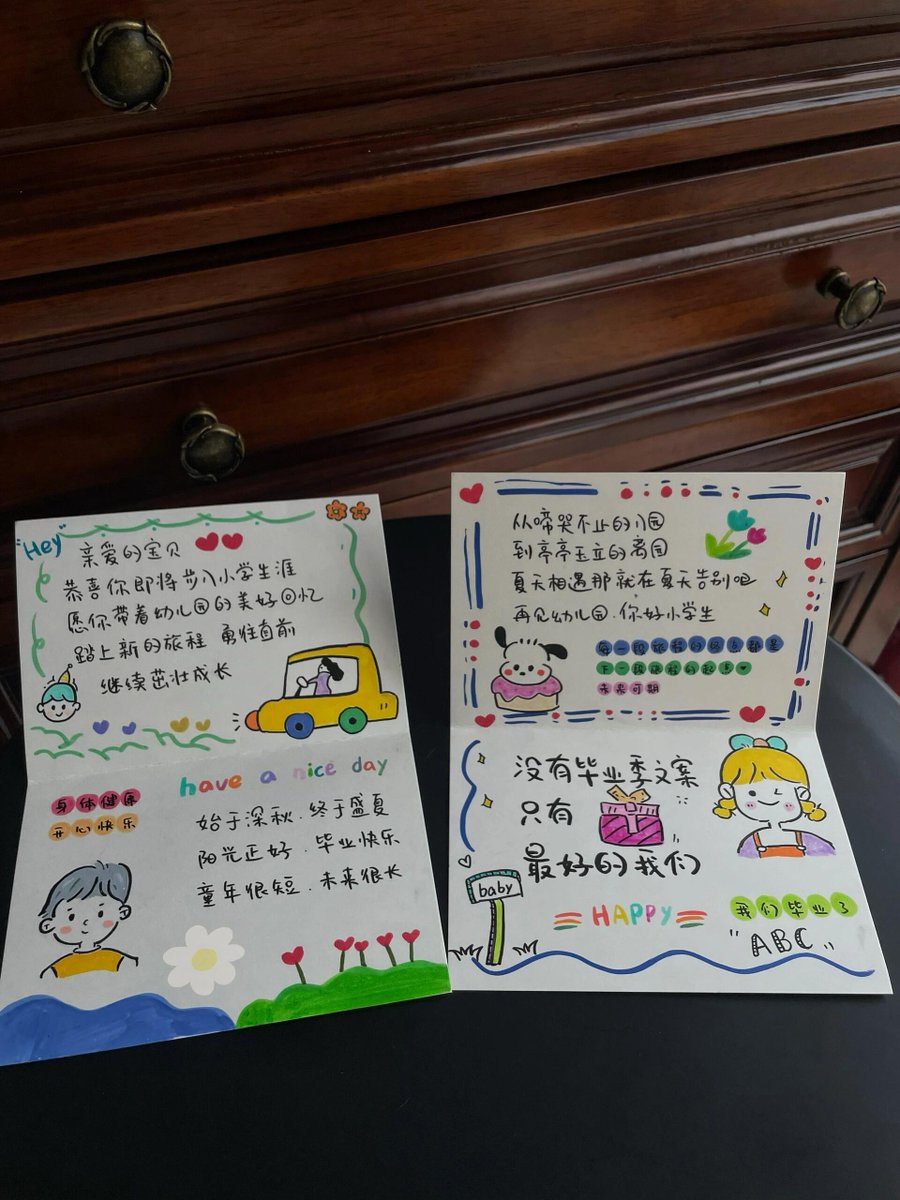 "Hey"
亲爱的宝贝
恭喜你即将步入小学生涯
愿你带着幼儿园的美好回忆
踏上新的旅程 勇往直前
继续茁壮成长
have a nice day
身体健康
开心快乐
始于深秋.终于盛夏
阳光正好.毕业快乐
童年很短.未来很长
从啼哭不止的入园
到亭亭玉立的离园
夏天相遇那就在夏天告别吧
再见幼儿园.你好小学生
每一段旅程的终点都是
下一段旅程的起点
未来可期
没有毕业季文案
只有
最好的我们
baby
HAPPY
我们毕业了
"ABC"